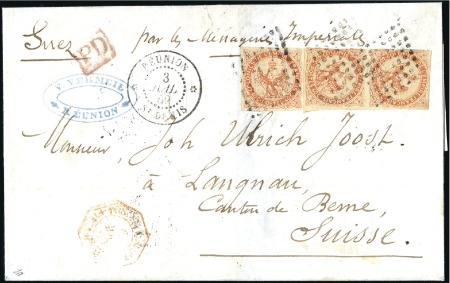 Suez par les Messagerie Impériale
PD
V. VERMEIL
RÉUNION
RÉUNION
3
JUIL.
ST DENIS
Monsieur, Joh Ulrich Joost.
à Langnau,
Canton de Berne,
Suisse.